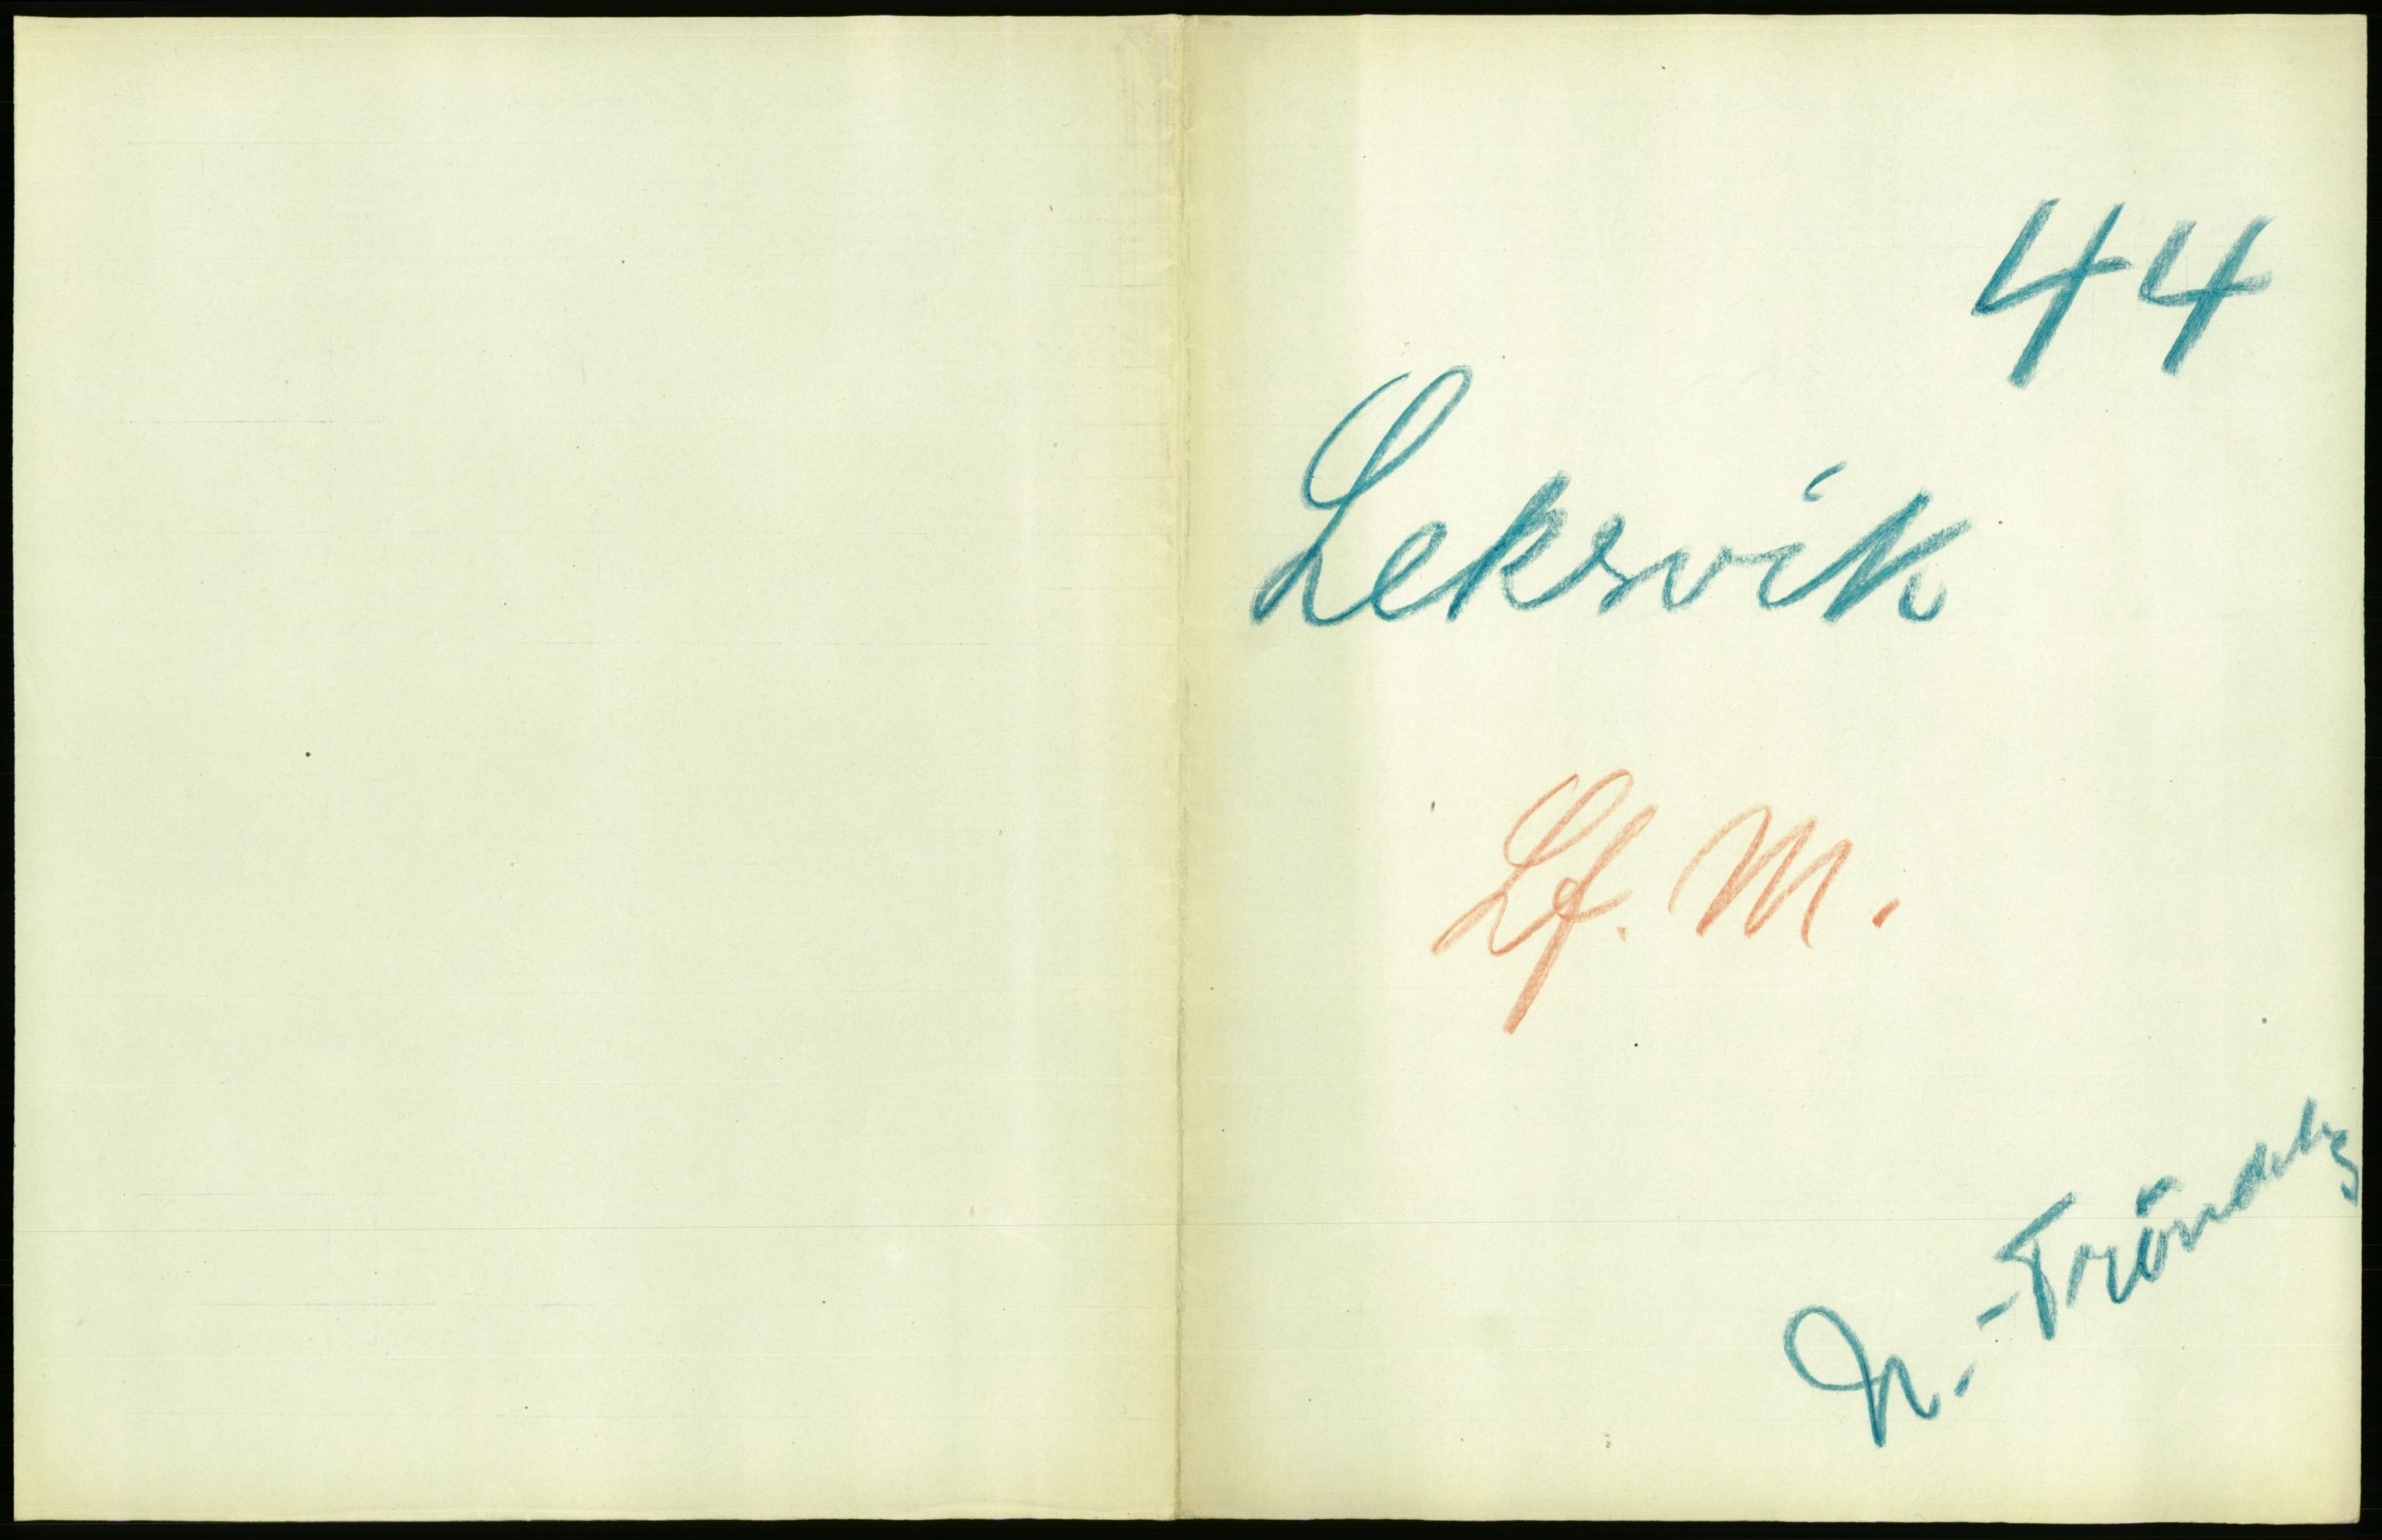 44
Leksvik
Lf. M.
N.-Tröndelg